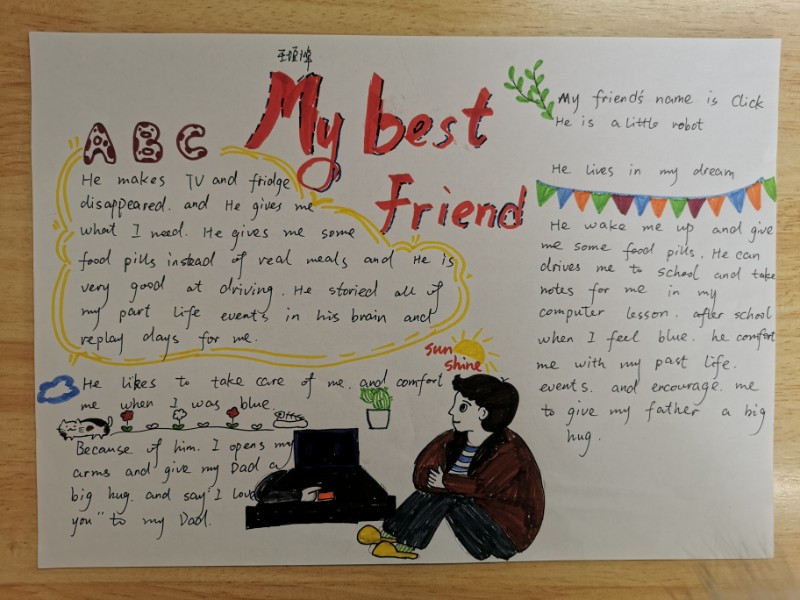 My best
Friend
ABC
He makes TV and fridge
disappeared. and He gives me
what I need. He gives me some
food pills instead of real meals and He is
very good at driving. He storied all of
my part life events in his brain and
replay days for me.
He likes to take care of me. and comfort
me when I was blue.
Because of him. I opens my
arms and give my Dad a
big hug. and say "I Love
you" to my Dad.
sun
shine
My friend's name is Click
He is a little robot
He lives in my dream
He wake me up and give
me some food pills. He can
drives me to school and take
notes for me in my
computer lesson. after school
when I feel blue. he comfort
me with my past life.
events. and encourage. me
to give my father a big
hug.